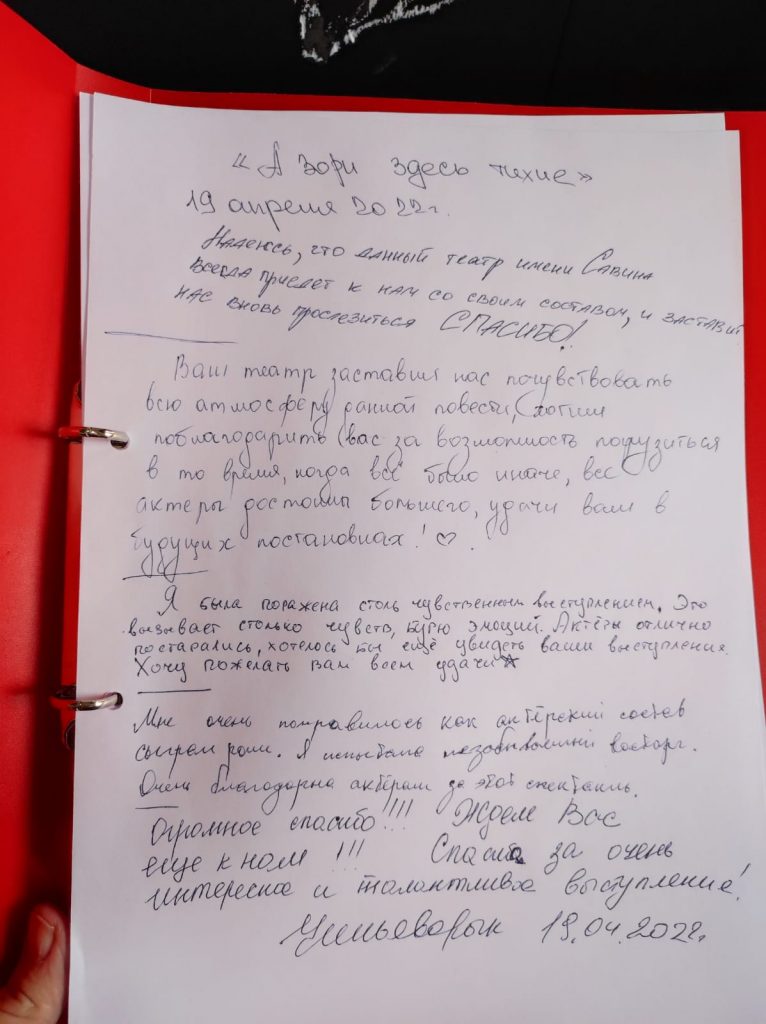 «А зори здесь тихие»
19 апреля 2022г.
Надеюсь, что данный театр имени Савина
всегда приедет к нам со своим составом, и заставит
нас вновь прослезиться СПАСИБО!
Ваш театр заставил нас почувствовать
всю атмосферу данной повести, (хотим
поблагодарить) вас за возможность погрузиться
в то время, когда всё было иначе, все
актеры достойны большего, удачи вам в
будущих постановках! ♡
Я была поражена столь чувственным выступлением. Это
вызывает столько чувств, бурю эмоций. Актёры отлично
постарались, хотелось бы ещё увидеть ваши выступления.
Хочу пожелать вам всем удачи☆
Мне очень понравилось как актёрский состав
сыграл роли. Я испытала незабываемый восторг.
Очень благодарна актёрам за этот спектакль.
Огромное спасибо!!!! Ждем Вас
еще к нам !!! Спасибо за очень
интересное и талантливое выступление!
Усть-Ворык 19.04.2022г.